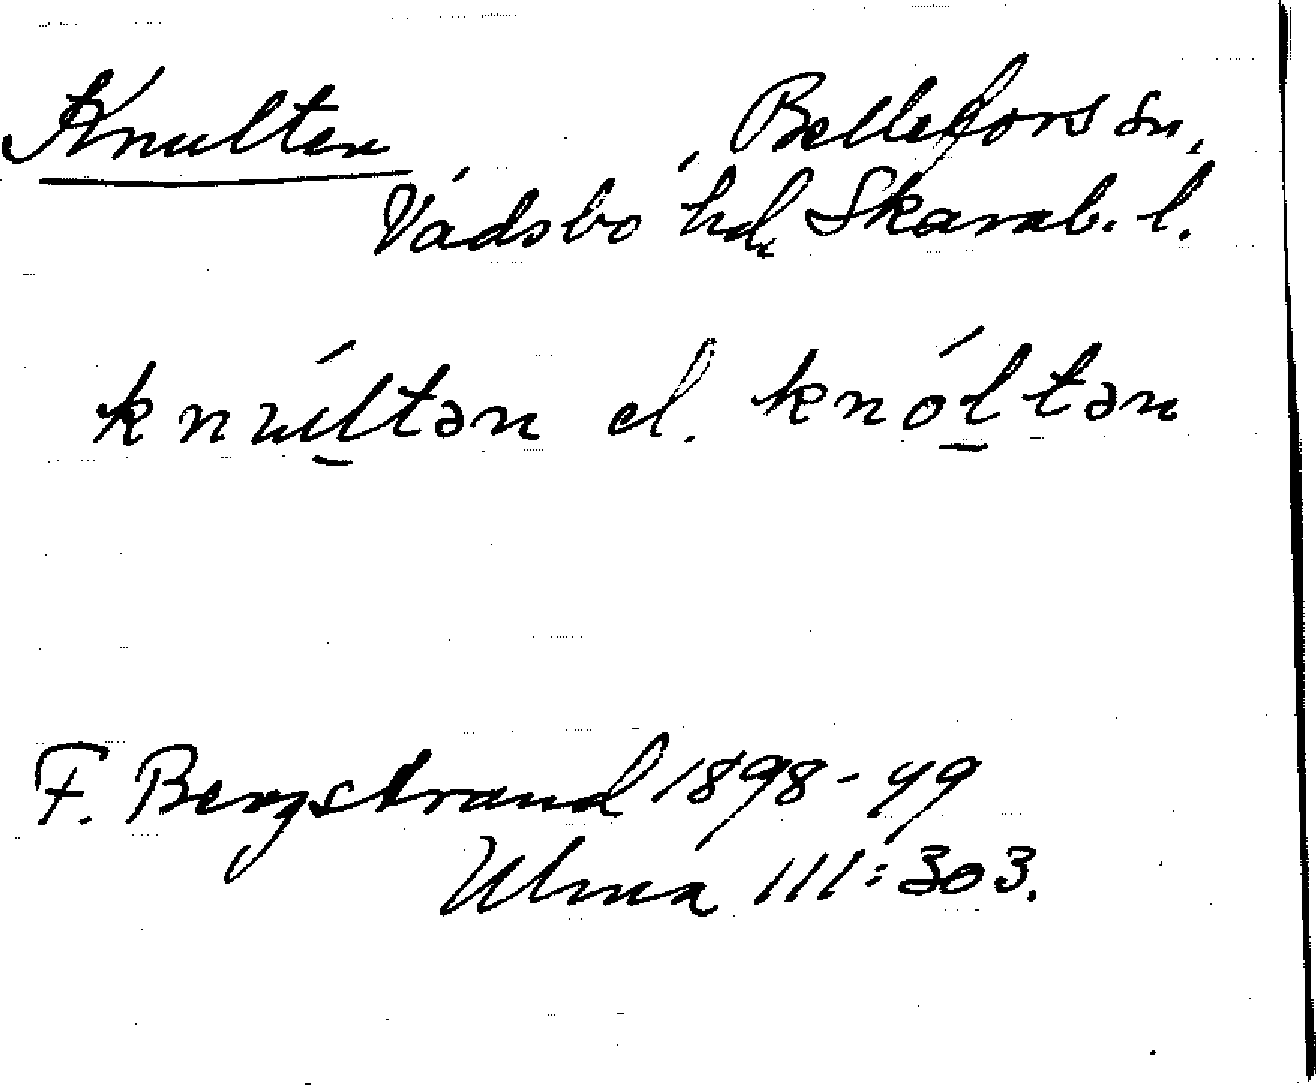 Knulten , Bellefors sn,
Vadsbo hd, Skarab. l.
knúltən el. knóltən
F. Bergstrand 1898-99
Ulma 111:303.